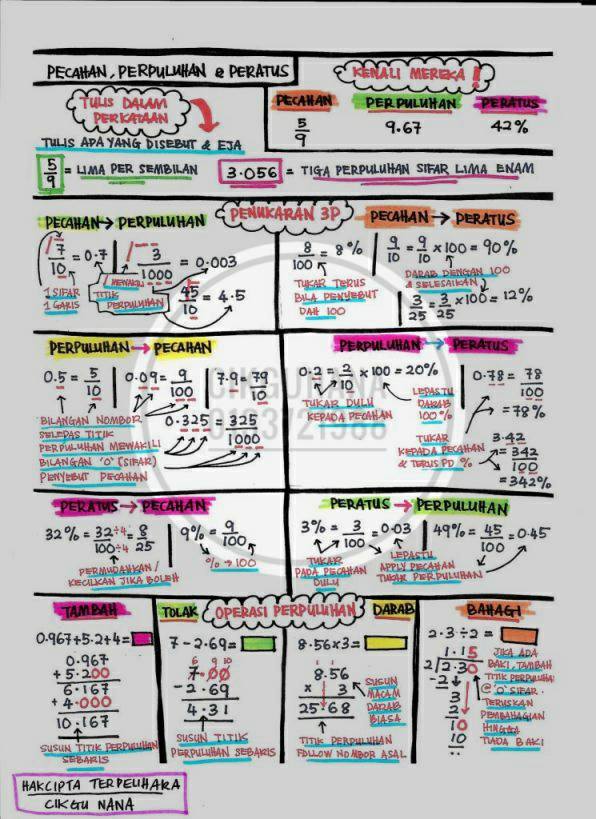 PECAHAN, PERPULUHAN & PERATUS
KENALI MEREKA!
TULIS DALAM
PERKATAAN
TULIS APA YANG DISEBUT & EJA
PECAHAN PERPULUHAN PERATUS
5/9 9.67 42%
5/9 = LIMA PER SEMBILAN
3.056 = TIGA PERPULUHAN SIFAR LIMA ENAM
PENUKARAN 3P
PECAHAN → PERPULUHAN
7/10 = 0.7
3/1000 = 0.003
1 SIFAR
1 GARIS
/ MEWAKILI
TITIK
PERPULUHAN
45/10 = 4.5
PECAHAN → PERATUS
8/100 = 8%
TUKAR TERUS
BILA PENYEBUT
DAH 100
9/10 = 9/10 × 100 = 90%
DARAB DENGAN 100
& SELESAIKAN
3/25 = 3/25 × 100 = 12%
PERPULUHAN → PECAHAN
0.5 = 5/10
0.09 = 9/100
7.9 = 79/10
0.325 = 325/1000
BILANGAN NOMBOR
SELEPAS TITIK
PERPULUHAN MEWAKILI
BILANGAN '0' (SIFAR)
PENYEBUT PECAHAN
PERPULUHAN → PERATUS
0.2 = 2/10 × 100 = 20%
TUKAR DULU
KEPADA PECAHAN
LEPAS TU
DARAB
100%
0.78 = 78/100
= 78%
TUKAR
KEPADA PECAHAN
& TERUS PD %
3.42
= 342/100
= 342%
CIKGU NANA
PERATUS → PECAHAN
32% = 32÷4/100÷4 = 8/25
PERMUDAHKAN /
KECILKAN JIKA BOLEH
9% = 9/100
% → 100
PERATUS → PERPULUHAN
3% = 3/100 = 0.03
TUKAR
PADA PECAHAN
DULU
LEPAS TU
APPLY PECAHAN
TUKAR PERPULUHAN
49% = 45/100 = 0.45
OPERASI PERPULUHAN
TAMBAH
0.967+5.2+4=
0.967
+ 5.200
6.167
+ 4.000
10.167
SUSUN TITIK PERPULUHAN
SEBARIS
TOLAK
7 - 2.69 =
6 9 10
7.00
- 2.69
4.31
SUSUN TITIK
PERPULUHAN SEBARIS
DARAB
8.56×3=
8.56
× 3
25.68
SUSUN
MACAM
DARAB
BIASA
TITIK PERPULUHAN
FOLLOW NOMBOR ASAL
BAHAGI
2.3÷2 =
1.15
2/2.30
-2
3
2
10
10
JIKA ADA
BAKI, TAMBAH
TITIK PERPULUHAN
@ '0' SIFAR.
TERUSKAN
PEMBAHAGIAN
HINGGA
TIADA BAKI
HAKCIPTA TERPELIHARA
CIKGU NANA